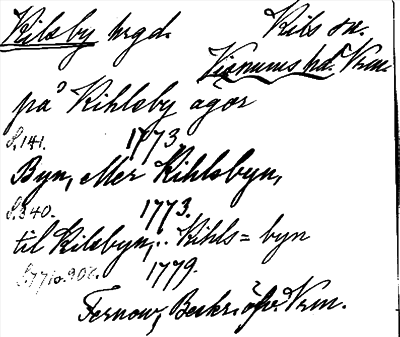 Kilsby hrgd. Kils sn.
Visnums hd. Vrm.
på Kihlsby ägor
S. 141. 1773.
Byn, eller Kihlsbyn,
S. 340. 1773.
til Kilsbyn; .. Kihls=byn
1779.
Fernow, Beskr. öfv. Vrm.